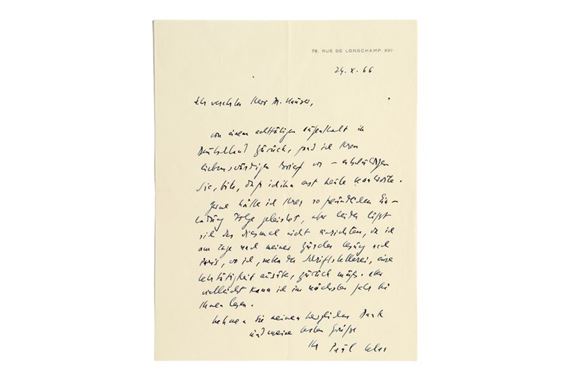 78, RUE DE LONGCHAMP, XVIe
24. X. 66
Sehr verehrter Herr Dr.
von einem achttägigen Aufenthalt in
Deutschland zurück, fand ich Ihren
liebenswürdigen Brief vor – entschuldigen
Sie, bitte, daß ich ihn erst heute beantworte.
Gerne hätte ich Ihrer so freundlichen Ein-
ladung Folge geleistet, aber leider läßt
sich das diesmal nicht einrichten, da ich
am Tage nach meiner Zürcher Lesung nach
Paris, wo ich, neben der Schriftstellerei, eine
Lehrtätigkeit ausübe, zurück muß. Aber
vielleicht kann ich im nächsten Jahr bei
Ihnen lesen.
Nehmen Sie meinen herzlichen Dank
und meine besten Grüße
Ihr Paul Celan